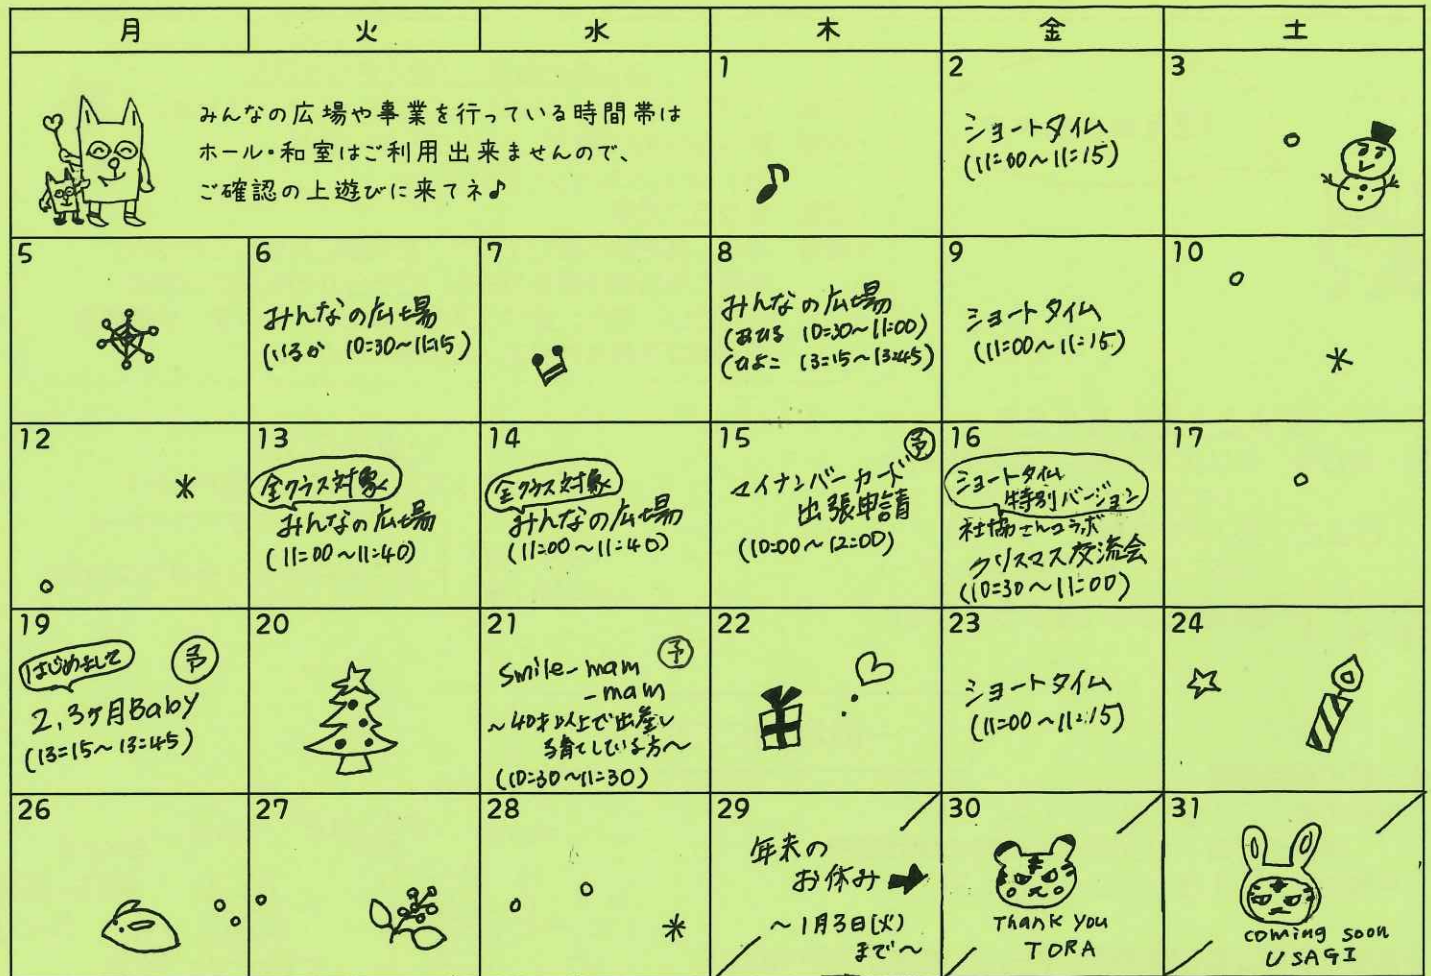 月 火 水 木 金 土
みんなの広場や事業を行っている時間帯は
ホール・和室はご利用出来ませんので、
ご確認の上遊びに来てネ♪
1
2
ショートタイム
(11:00～11:15)
3
5
6
みんなの広場
(いるか 10:30～11:15)
7
8
みんなの広場
(あひる 10:30～11:00)
(ひよこ 13:15～13:45)
9
ショートタイム
(11:00～11:15)
10
12
13
全クラス対象
みんなの広場
(11:00～11:40)
14
全クラス対象
みんなの広場
(11:00～11:40)
15
予
マイナンバーカード
出張申請
(10:00～12:00)
16
ショートタイム
特別バージョン
社協さんコラボ
クリスマス交流会
(10:30～11:00)
17
19
はじめまして
予
2,3ヶ月Baby
(13:15～13:45)
20
21
予
Smile-mam
-mam
～40才以上で出産し
子育てしている方～
(10:30～11:30)
22
23
ショートタイム
(11:00～11:15)
24
26
27
28
29
年末の
お休み
～1月3日(火)
まで～
30
Thank you
TORA
31
coming soon
USAGI